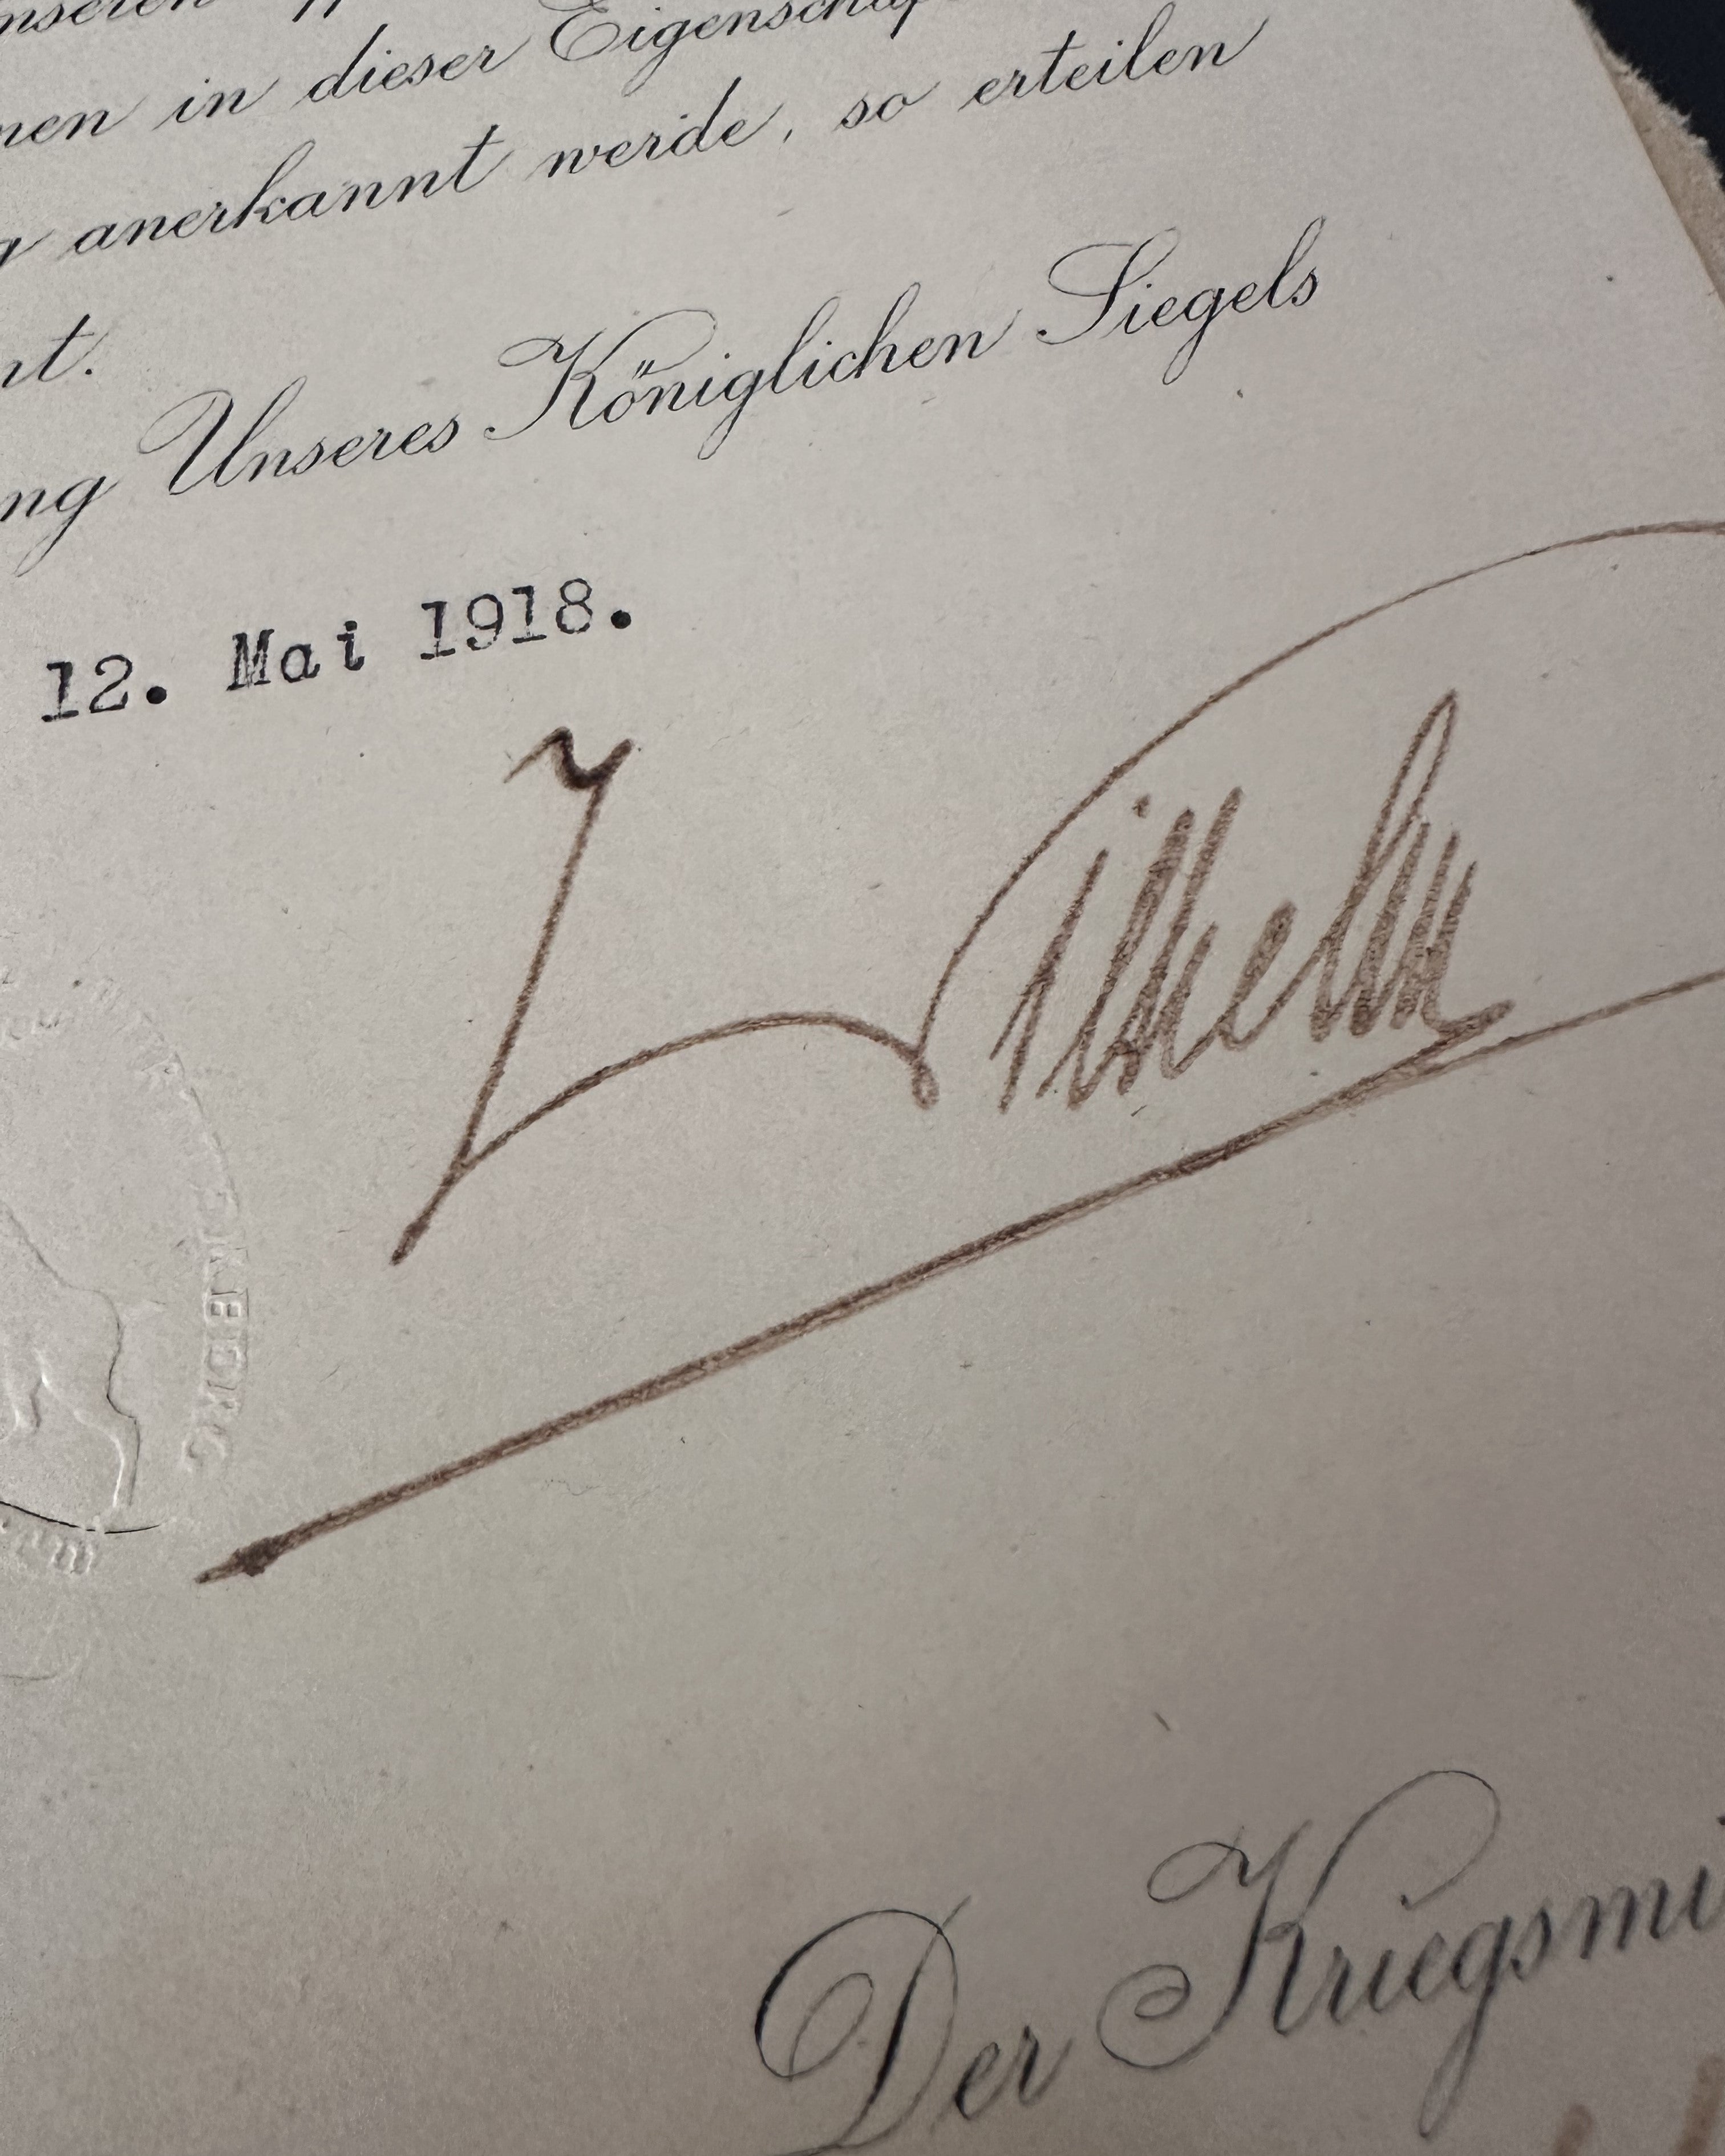 nseren
in dieser Eigenschaf
anerkannt werde, so erteilen
nt.
ng Unseres Königlichen Siegels
12. Mai 1918.
Wilhelm
Der Kriegsmi